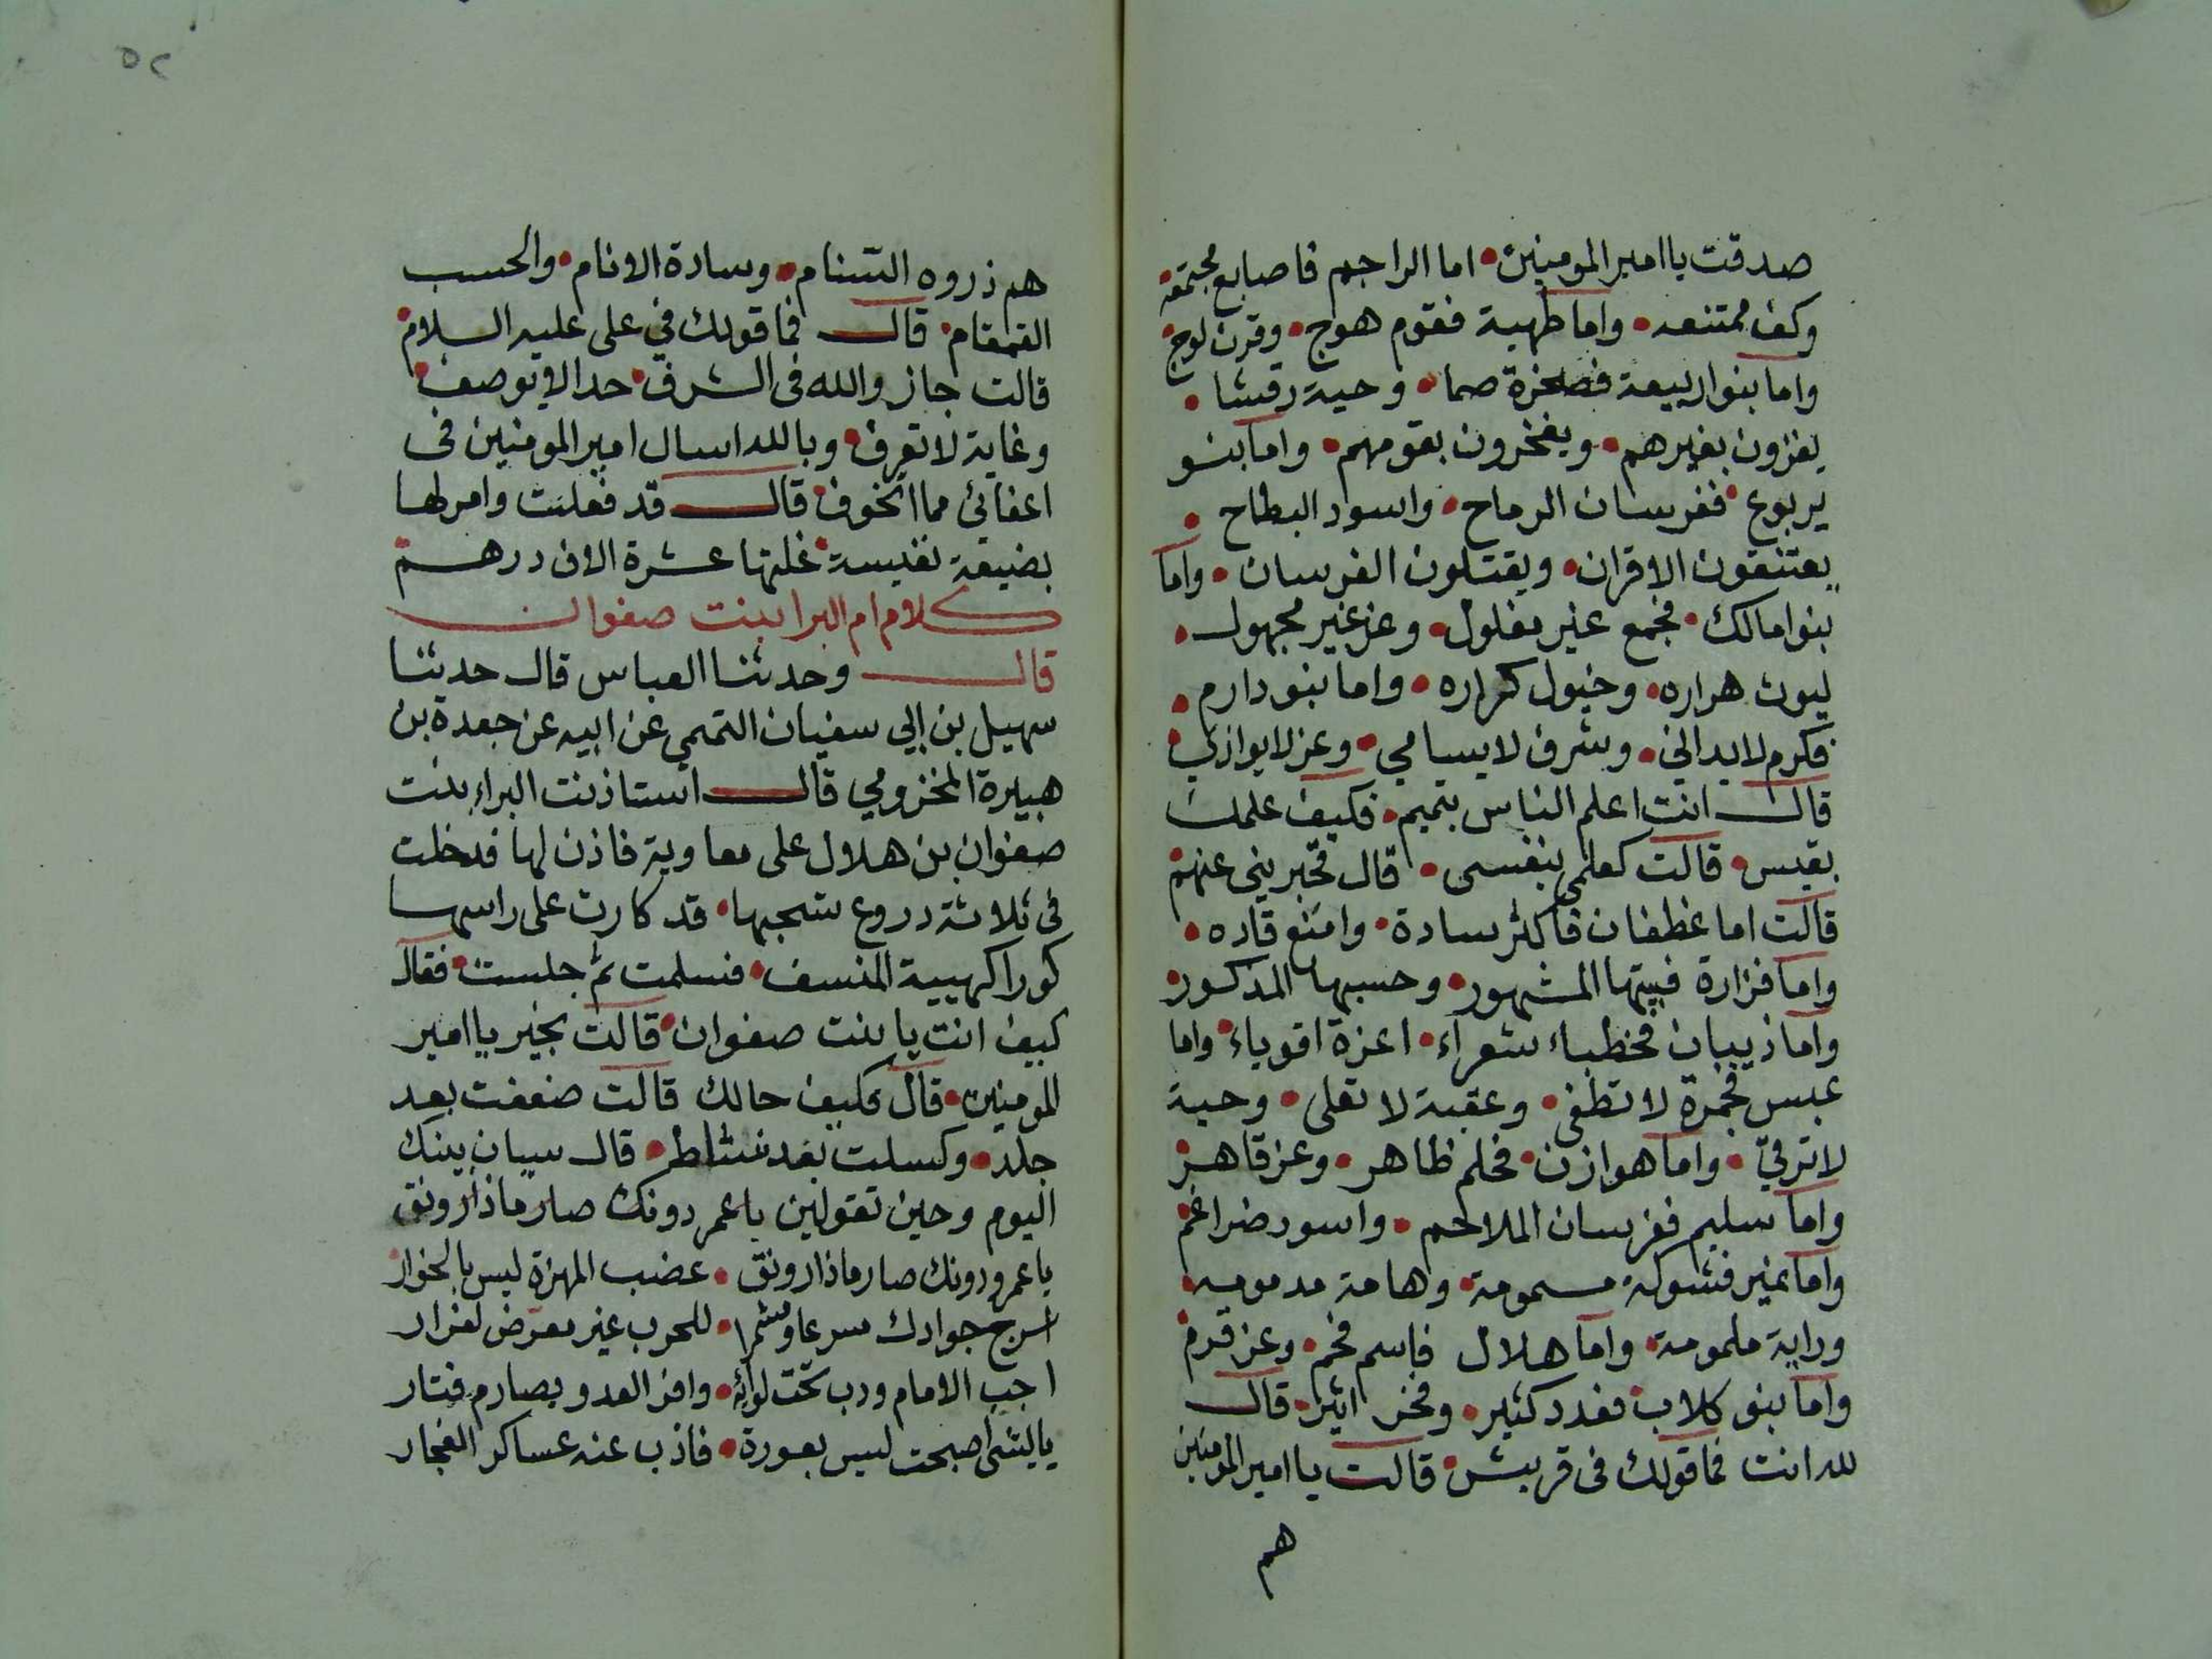 صدقت يا امير المومنين • اما الراجم فاصابع مجتمعة •
وكف ممتنعه • واما طهية فقوم هوج • وقرن لوج •
واما بنوا ربيعة فصخرة صما • وحية رقشا •
يغزون بغيرهم • ويفخرون بقومهم • واما بنو
يربوع • ففرسان الرماح • واسود البطاح •
يعتنقون الاقران • ويقتلون الفرسان • واما
بنوا مالك • فجمع غير مفلول • وعز غير مجهول •
ليوث هراره • وخيول كراره • واما بنو دارم •
فكرم لا يداني • وشرف لا يسامي • وعز لا يوازي •
قال انت اعلم الناس بتميم • فكيف علمك
بقيس • قالت كعلمي بنفسي • قال فخبريني عنهم •
قالت اما غطفان فاكثر سادة • وامنع قاده •
واما فزارة فبيتها المشهور • وحسبها المذكور •
واما ذيبان فخطباء شعراء • اعزة اقوياء • واما
عبس فجمرة لا تطفى • وعقبة لا تعلى • وحية
لا ترقي • واما هوازن • فحلم ظاهر • وعز قاهر •
واما سليم ففرسان الملاحم • واسود ضراغم •
واما نمير فشوكة مسمومة • وهامة مدمومه •
وراية ملمومة • واما هلال فاسم فخم • وعز قرم •
واما بنو كلاب • فعدد كثير • وفخر اثير • قال
لله انت فما قولك في قريش • قالت يا امير المومنين
هم
٥٢
هم ذروه السنام • وسادة الانام • والحسب
القمقام • قال فما قولك في على عليه السلام •
قالت جاز والله في الشرف • حدا لا يوصف •
وغاية لا تعرف • وبالله اسال امير المومنين في
اعفائي مما اتخوف • قال قد فعلت وامر لها
بضيعة نفيسة • غلتها عشرة الاف درهم •
كلام ام البرا بنت صفوان
قال وحدثنا العباس قال حدثنا
سهيل بن ابي سفيان التممي عن ابيه عن جعدة بن
هبيرة المخزومي قال استاذنت البراء بنت
صفوان بن هلال على معاوية فاذن لها فدخلت
في ثلاثة دروع شحبها • قد كارت على راسها
كورا كهيية المنسف • فسلمت ثم جلست • فقال
كيف انت يا بنت صفوان • قالت بخير يا امير
المومنين • قال فكيف حالك قالت ضعفت بعد
جلد • وكسلت بعد نشاط • قال سيان بينك
اليوم وحين تقولين يا عمر دونك صارما ذا رونق
يا عمرو دونك صارما ذا رونق • عضب المهزة ليس بالخوار •
اسرج جوادك سرعا وشمرا • للحرب غير معرض لفرار
اجب الامام ودب تحت لوائه • وافر العدو بصارم فتار
يا ليتني اصبحت ليس بعورة • فاذب عنه عساكر الفجار